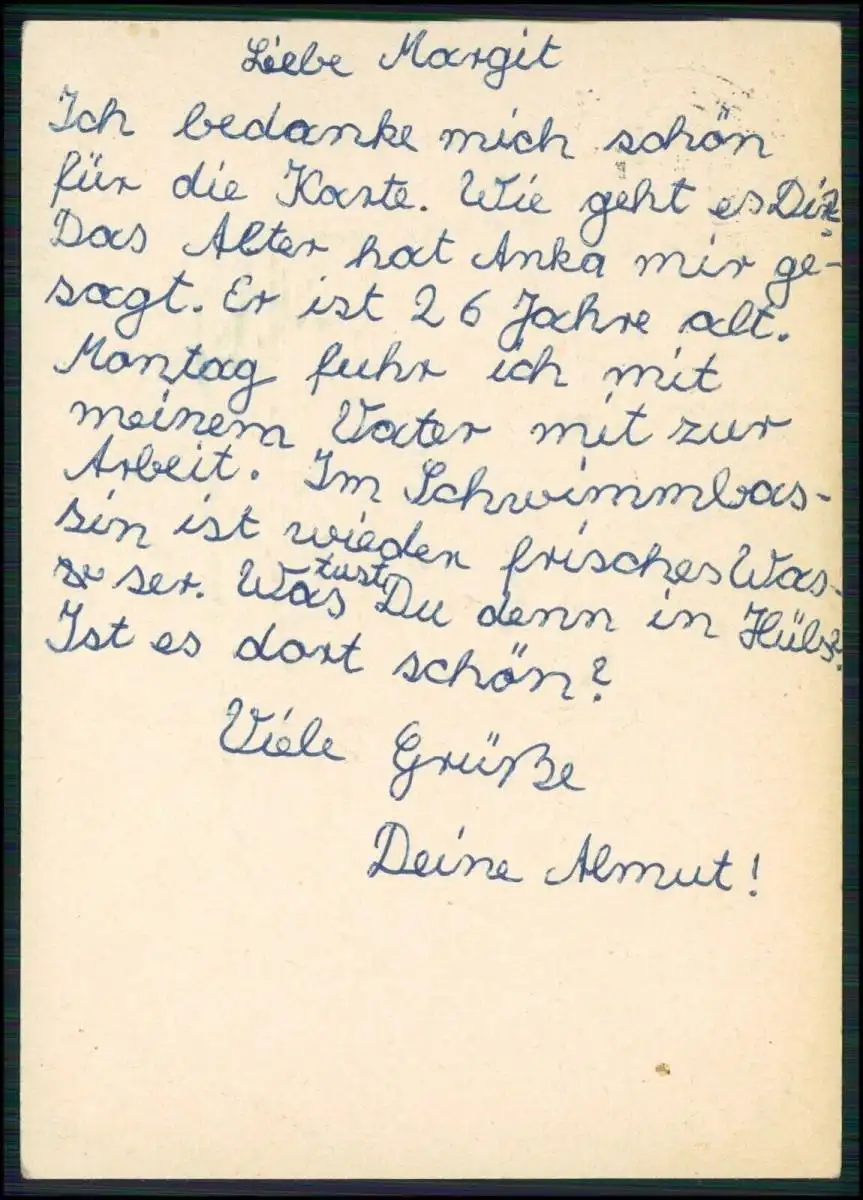 Liebe Margit
Ich bedanke mich schön
für die Karte. Wie geht es Dir?
Das Alter hat Anka mir ge-
sagt. Er ist 26 Jahre alt.
Montag fuhr ich mit
meinem Vater mit zur
Arbeit. Im Schwimmbas-
sin ist wieder frisches Was-
ser. Was tust Du denn in
Ist es dort schön?
Viele Grüße
Deine Almut!